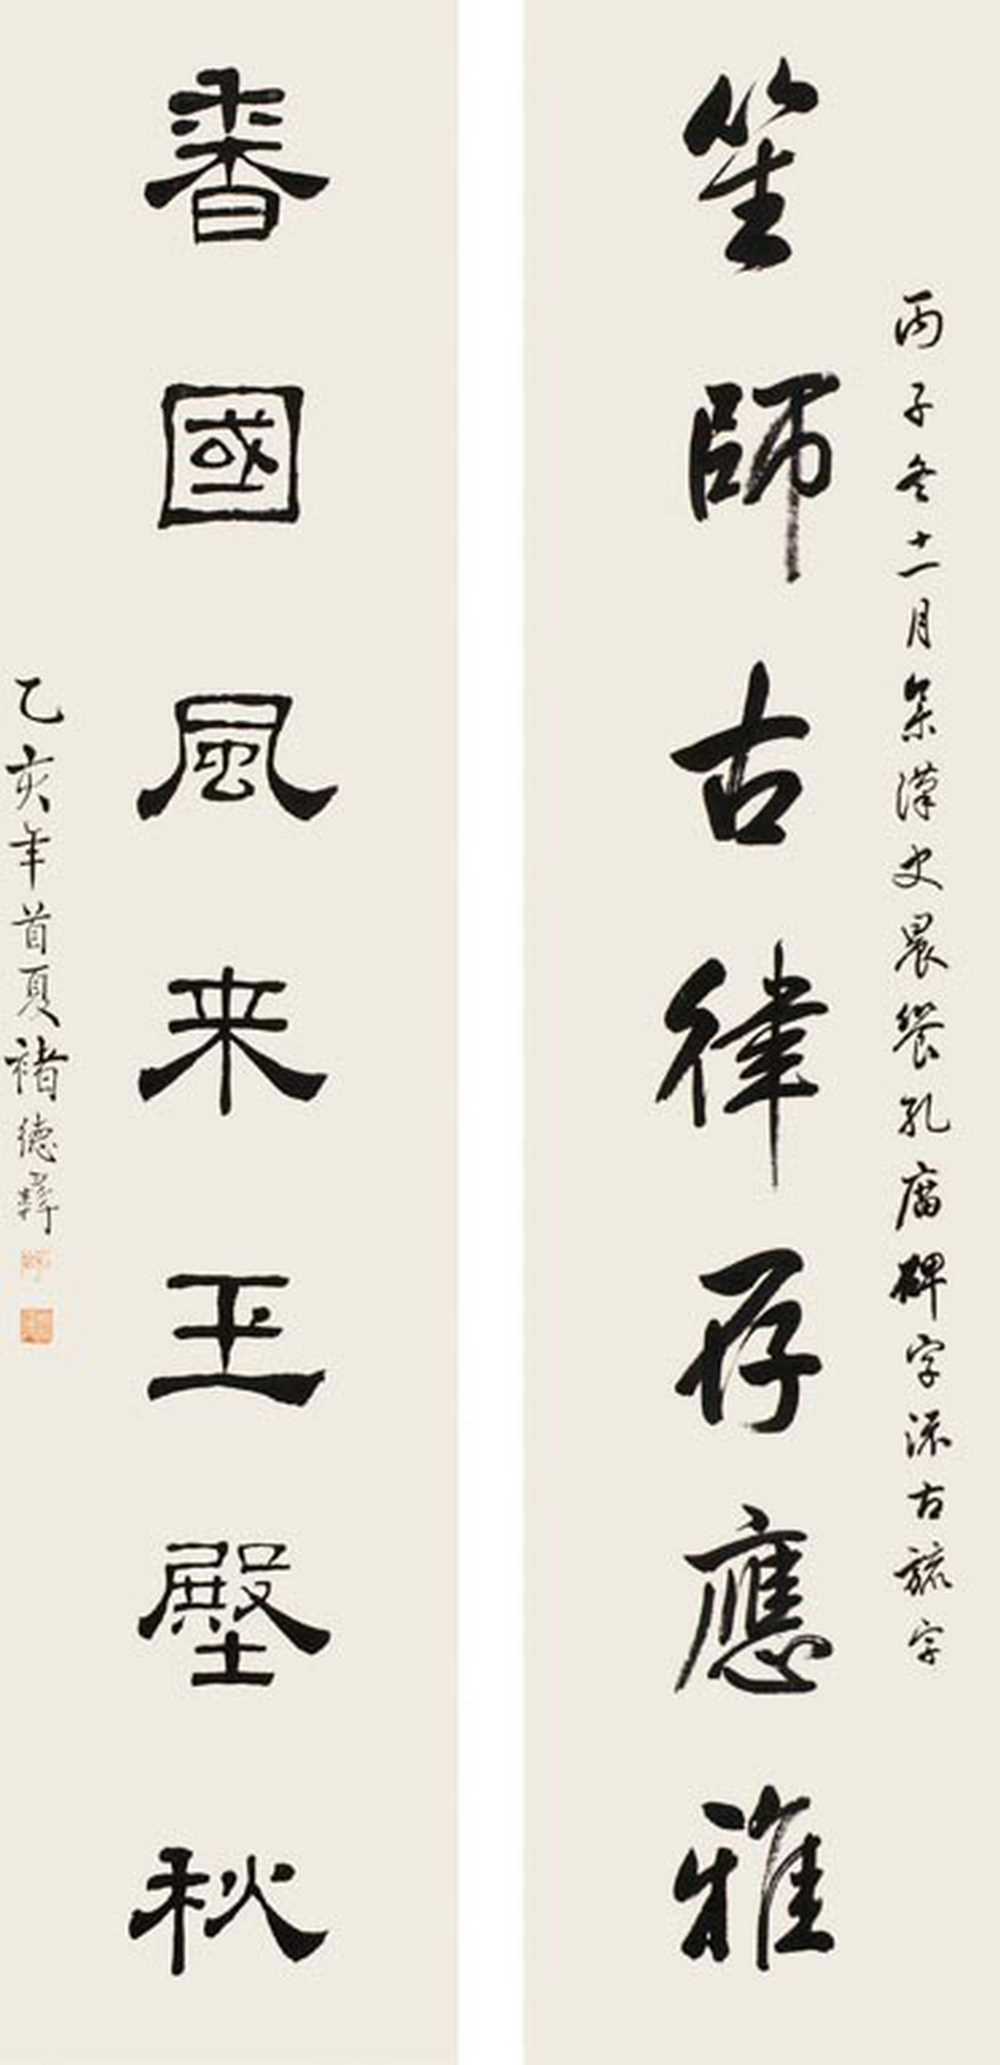 丙子冬十一月集漢史晨饗孔廟碑字古字
笙師古律存應雅
香國風来玉壂秋
乙亥年首夏褚德彝